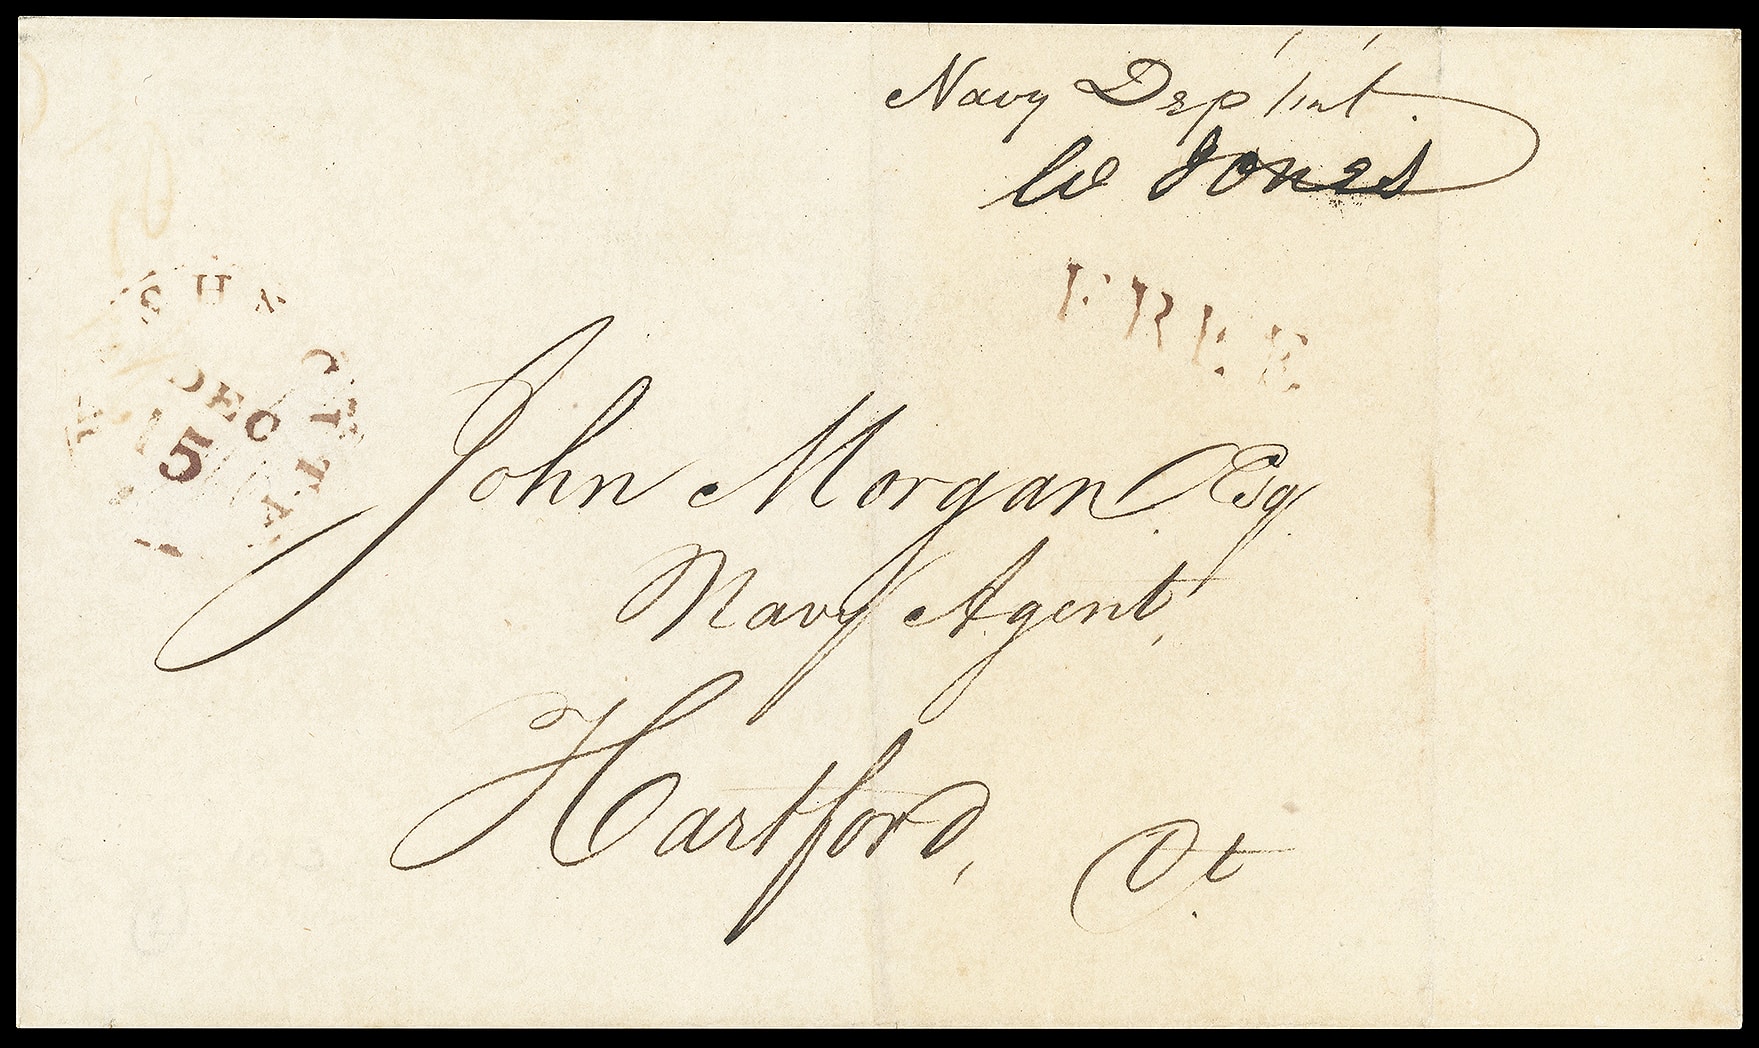 Navy Dep'mt.
W Jones
FREE
WASH CITY
DEC
15
John Morgan Esq.
Navy Agent,
Hartford, Ct.